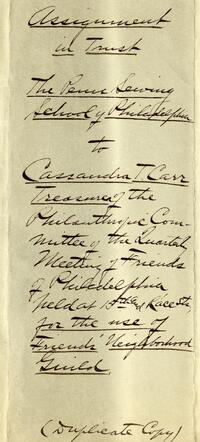 Assignment
in Trust
The Penn Sewing
School of Philadelphia
to
Cassandra T Carr
Treasurer of the
Philanthropic Com-
mittee of the Quarterly
Meeting of Friends
of Philadelphia
held at 15th and Race Sts.
for the use of
Friends Neighborhood
Guild
(Duplicate Copy)